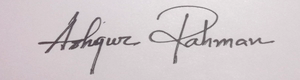 Ashiqur Rahman